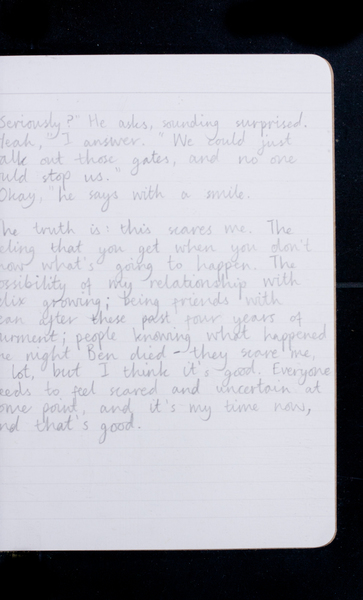 Seriously?" He asks, sounding surprised.
Yeah," I answer. "We could just
alk out those gates, and no one
ould stop us."
Okay," he says with a smile.
he truth is: this scares me. The
eeling that you get when you don't
now what's going to happen. The
ossibility of my relationship with
elix growing; being friends with
ean after these past four years of
urment; people knowing what happened
he night Ben died - they scare me,
lot, but I think it's good. Everyone
eeds to feel scared and uncertain at
ome point, and it's my time now,
nd that's good.